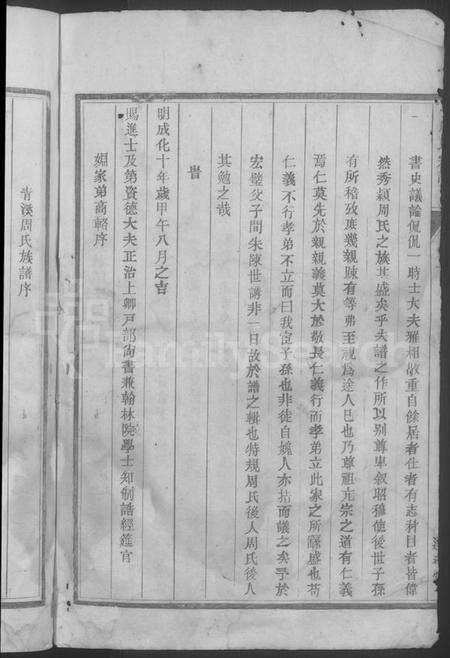 書史議論侃侃一時士大夫雅相敬重自餘居者仕者有志科目者皆偉
然秀穎周氏之族其盛矣乎夫譜之作所以别尊卑叙昭穆使後世子孫
有所稽攷庶幾親踈有等弗至視為途人已也乃尊祖亢宗之道有仁義
焉仁莫先於親親義莫大於敬長仁義行而孝弟立此家之所繇盛也苟
仁義不行孝弟不立而曰我宦子孫也非徒自媿人亦掊而議之矣予於
宏璧父子間朱陳世講非一日故於譜之輯也特規周氏後人周氏後人
其勉之哉
旹
明成化十年歲甲午八月之吉
賜進士及第資德大夫正治上卿戶部尚書兼翰林院學士知制誥經筵官
姻家弟商輅序
青溪周氏族譜序